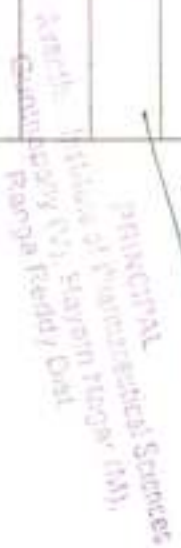 PRINCIPAL
Avanthi Institute of Pharmaceutical Sciences
Gunthapally (V), Hayath Nagar (M),
Ranga Reddy Dist